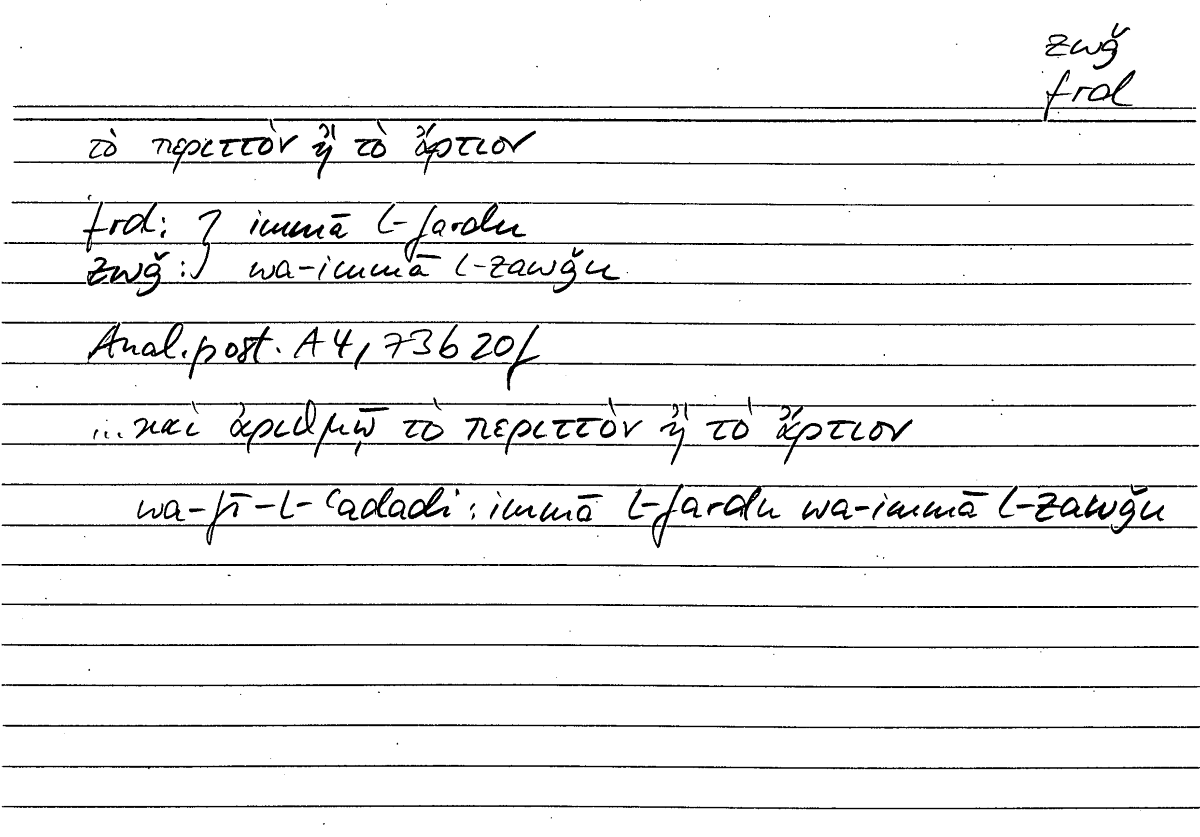 zwǧ
frd
τὸ περιττὸν ἢ τὸ ἄρτιον
frd: } immā l-fardu
zwǧ: } wa-immā l-zawǧu
Anal. post. A 4, 73 b 20f
...καὶ ἀριθμῷ τὸ περιττὸν ἢ τὸ ἄρτιον
wa-fī-l-ʿadadi: immā l-fardu wa-immā l-zawǧu